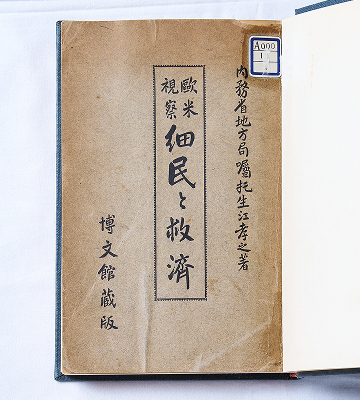 A000
1
内務省地方局囑托生江孝之著
歐米
視察
細民と救濟
博文館藏版